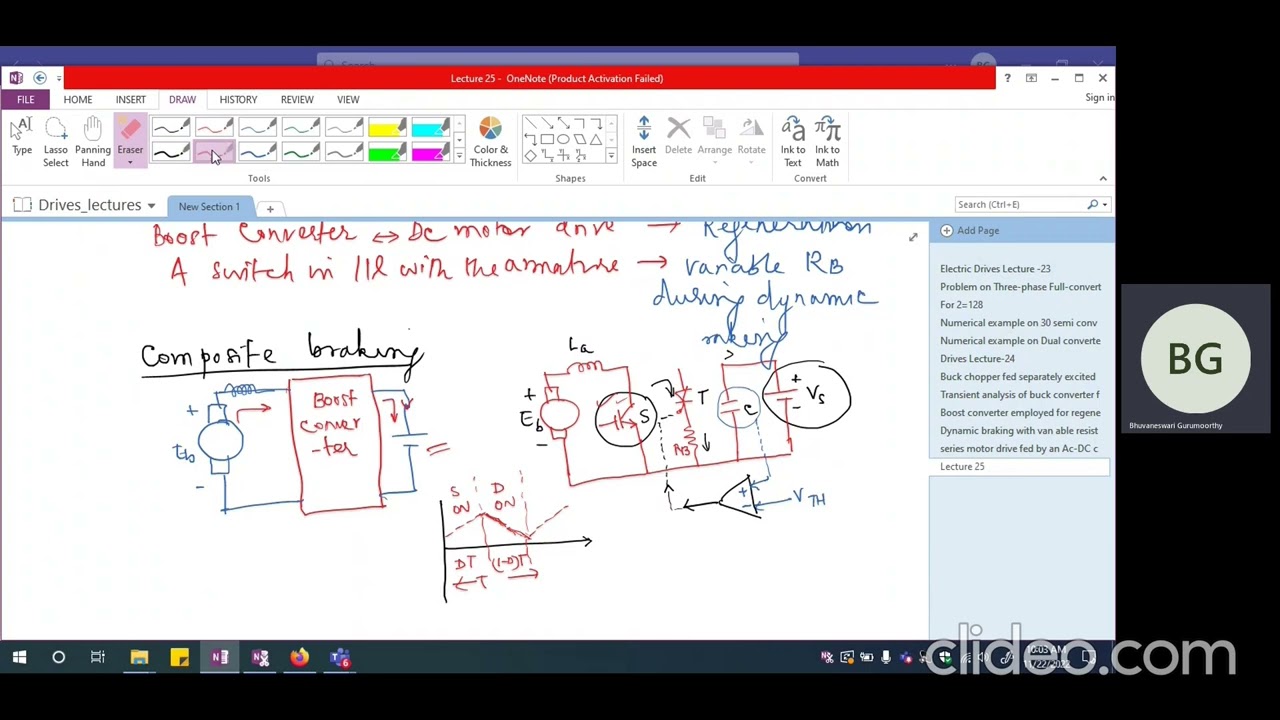 Lecture 25 - OneNote (Product Activation Failed)
? 
FILE HOME INSERT DRAW HISTORY REVIEW VIEW
Sign in
Type
Lasso Select
Panning Hand
Eraser
Color & Thickness
Insert Space
Delete
Arrange
Rotate
Ink to Text
Ink to Math
Tools
Shapes
Edit
Convert
Drives_lectures
New Section 1
Search (Ctrl+E)
Add Page
Electric Drives Lecture -23
Problem on Three-phase Full-convert
For 2=128
Numerical example on 30 semi conv
Numerical example on Dual converte
Drives Lecture-24
Buck chopper fed separately excited
Transient analysis of buck converter f
Boost converter employed for regene
Dynamic braking with van able resist
series motor drive fed by an Ac-DC c
Lecture 25
Boost Converter ↔ DC motor drive → Regeneration
A switch in 11l with the armature → variable RB
during dynamic
raking
Composite braking
+
Eb
-
Boost
conver
-ter
=
La
+
Eb
-
S
T
RB
C
+
-
Vs
+
-
VTH
S
ON
D
ON
DT
(1-D)T
← T →
BG
Bhuvaneswari Gurumoorthy
10:03 AM
11/22/2022
clideo.com